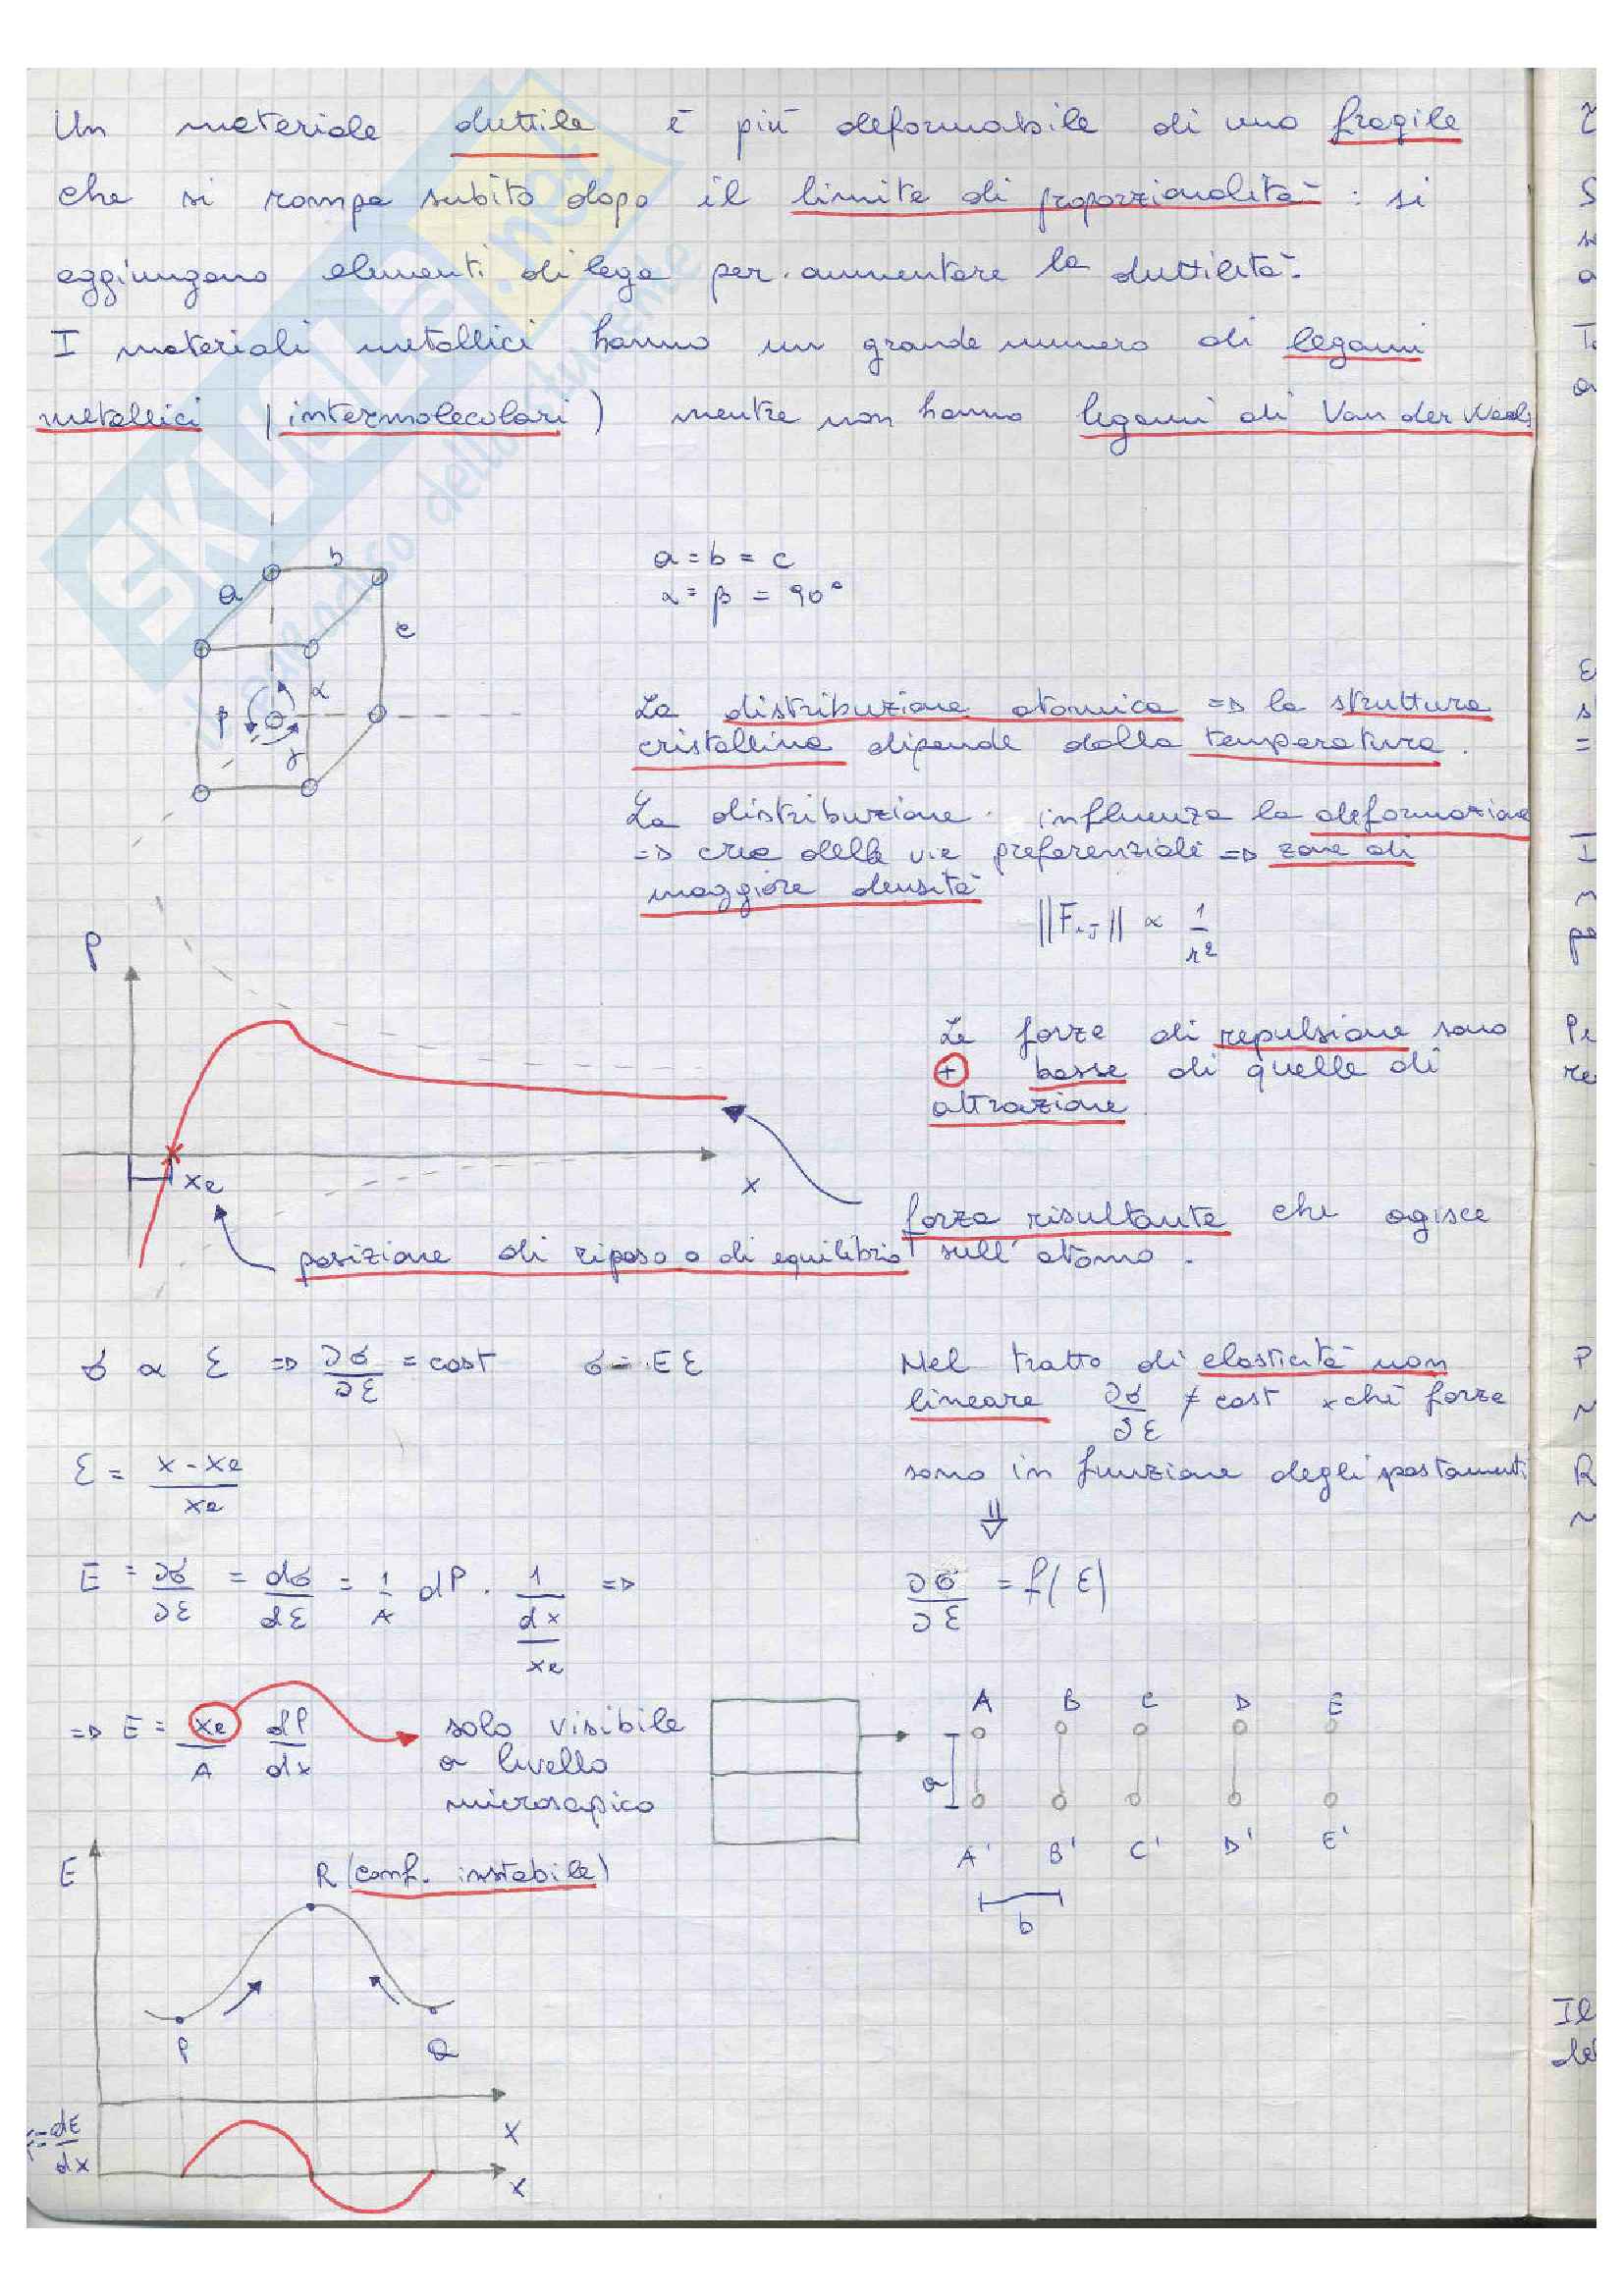 Un materiale duttile è più deformabile di uno fragile
che si rompe subito dopo il limite di proporzionalità : si
aggiungono elementi di lega per aumentare la duttilità.
I materiali metallici hanno un grande numero di legami
metallici (intermolecolari) mentre non hanno legami di Van der Waals
SKUOLA.net
b
a
c
α
β
γ
a = b = c
α = β = 90°
La distribuzione atomica => la struttura
cristallina dipende dalla temperatura.
La distribuzione influenza la deformazione
=> crea delle vie preferenziali => zone di
maggiore densità
||Fij|| ∝ 1/r²
P
Le forze di repulsione sono
+ basse di quelle di
attrazione
xe
x
forza risultante che agisce
sull'atomo.
posizione di riposo o di equilibrio
σ ∝ ε => ∂σ/∂ε = cost σ = Eε
Nel tratto di elasticità non
lineare ∂σ/∂ε ≠ cost xchè forze
sono in funzione degli spostamenti
⇓
ε = (x - xe)/xe
E = ∂σ/∂ε = dσ/dε = 1/A dP · 1/(dx/xe) =>
∂σ/∂ε = f(ε)
=> E = xe/A dP/dx
solo visibile
a livello
microscopico
A B C D E
a
A' B' C' D' E'
b
E
R (conf. instabile)
P
Q
x
dE/dx
x